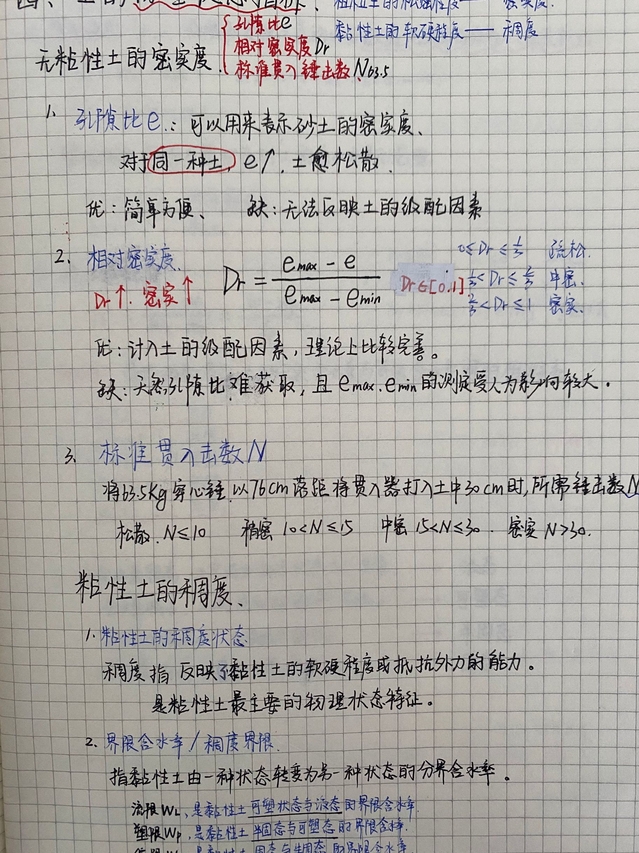 四、土的物理状态指标
粗粒土的松散程度——密实度
黏性土的软硬程度——稠度
无粘性土的密实度
孔隙比e
相对密实度Dr
标准贯入锤击数N63.5
1. 孔隙比e：可以用来表示砂土的密实度、
对于同一种土，e↑，土愈松散
优：简单方便、 缺：无法反映土的级配因素
2. 相对密实度
Dr↑. 密实↑
Dr = (emax - e) / (emax - emin)
Dr∈[0,1]
0≤Dr≤1/3 疏松.
1/3<Dr≤2/3 中密.
2/3<Dr≤1 密实.
优：计入土的级配因素，理论上比较完善。
缺：天然孔隙比难获取，且emax.emin的测定受人为影响较大。
3. 标准贯入击数N
将63.5Kg穿心锤.以76cm落距将贯入器打入土中30cm时,所需锤击数N
松散.N≤10 稍密 10<N≤15 中密 15<N≤30. 密实 N>30.
粘性土的稠度、
1. 粘性土的稠度状态
稠度指 反映了黏性土的软硬程度或抵抗外力的能力。
是粘性土最主要的物理状态特征。
2. 界限含水率/稠度界限.
指黏性土由一种状态转变为另一种状态的分界含水率。
流限WL，是黏性土可塑状态与液态的界限含水率.
塑限Wp，是黏性土半固态与可塑态的界限含水率.